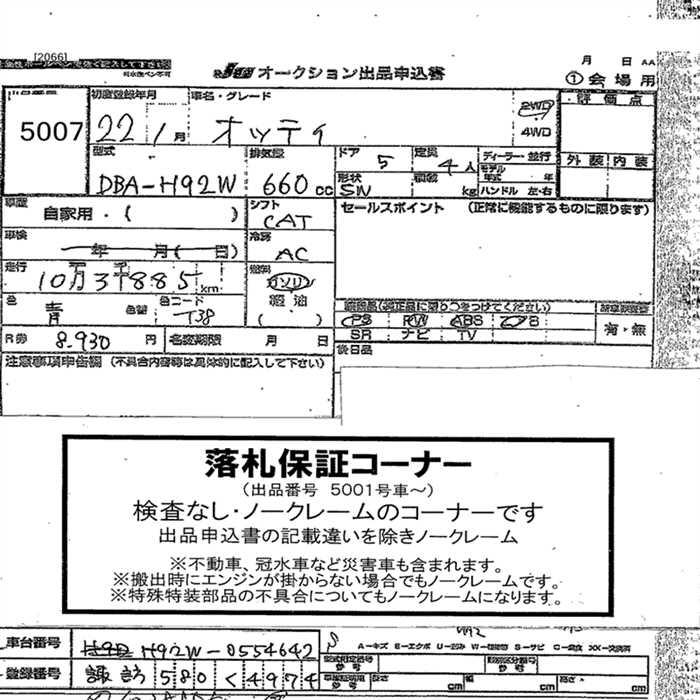 [2066]
オークション出品申込書
月 日 AA
①会場用
評価点
外装 内装
5007
初度登録年月
22 1月
車名・グレード
オッティ
2WD
4WD
型式
DBA-H92W
排気量
660cc
ドア
5
定員
4人
形状
SW
積載
kg
ディーラー 並行
モデル年式 年
ハンドル 左・右
車歴
自家用・( )
シフト
CAT
セールスポイント (正常に機能するものに限ります)
車検
年 月( 日)
冷房
AC
走行
10万3千885km
燃料
ガソリン
軽油
( )
色
青
色替
色コード
T38
PS RW ABS
SR ナビ TV
有・無
R券
8.930円
名変期限 月 日
後日品
注意事項申告欄 (不具合内容等は具体的に記入して下さい)
落札保証コーナー
(出品番号 5001号車~)
検査なし・ノークレームのコーナーです
出品申込書の記載違いを除きノークレーム
※不動車、冠水車など災害車も含まれます。
※搬出時にエンジンが掛からない場合でもノークレームです。
※特殊特装部品の不具合についてもノークレームになります。
車台番号
H92W-0554642
A-キズ E-エクボ
登録番号
諏訪 580 く 4974
長さ cm
幅 cm
高さ cm